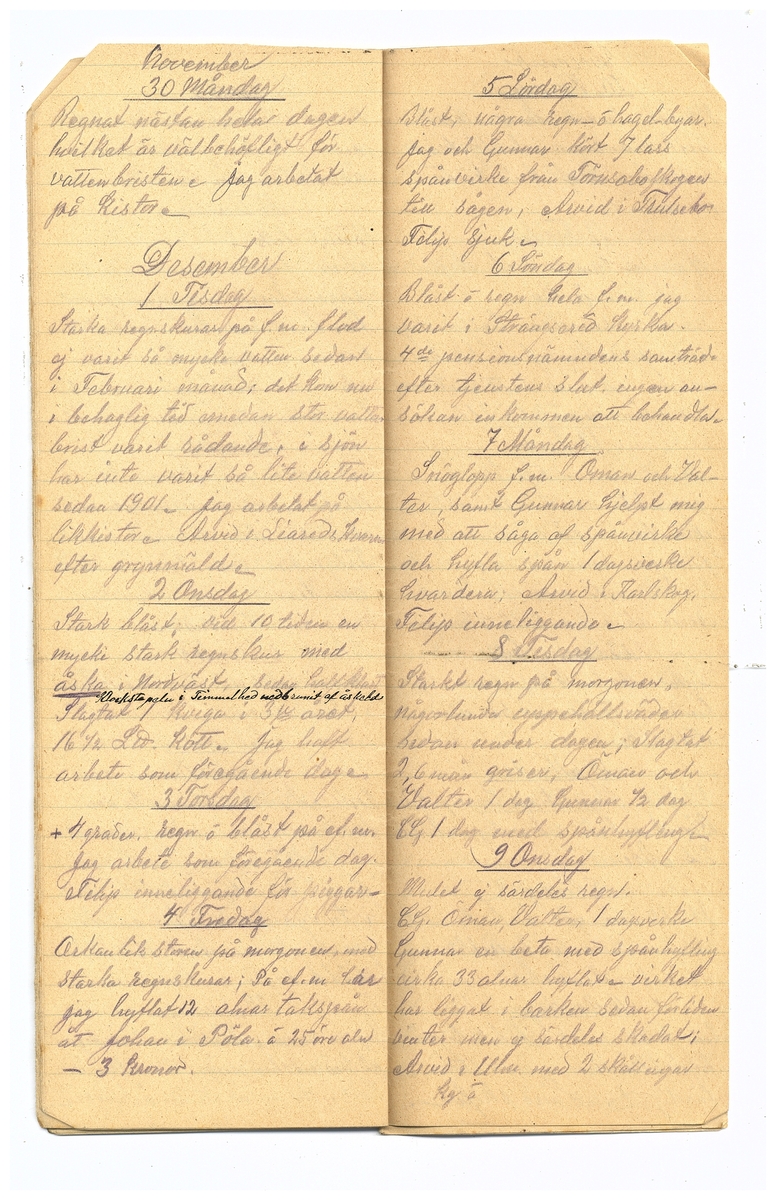 November
30 Måndag
Regnat nästan hela dagen
hvilket är välbehöfligt för
vattenbristen. Jag arbetat
på kistor.
Desember
1 Tisdag
Starka regnskurar på f.m. flod
ej varit så mycke vatten sedan
i Februari månad; det kom nu
i behaglig tid emedan stor vatten
brist varit rådande, i sjön
har inte varit så lite vatten
sedan 1901. Jag arbetat på
likkistor. Arvid i Liareds Kvarn
efter grynmäld.
2 Onsdag
Stark blåst, vid 10 tiden en
mycki stark regnskur med
åska i Nordväst, sedan
i Timmelhed nedbrunit af åskeld
Slagtat 1 kviga i 3dje året,
16 1/2 Lb. kött. Jag haft
arbete som föregående dag.
3 Torsdag
+ 4 grader, regn ö blåst på ef.m.
Jag arbete som föregående dag.
Filip inneliggande för
4 Fredag
Orkanlik storm på morgonen, med
starka regnskurar; På ef.m. har
jag hyflat 12 alnar takspån
åt Johan i Pöla. á 25 öre aln
— 3 kronor.
5 Lördag
Blåst, några regn- ö hagel-byar.
Jag och Gunnar kört 7 lass
spånvirke från Tornsaboskogen
till sågen, Arvid i
Filip sjuk.
6 Söndag
Blåst ö regn hela f.m. jag
varit i Strängsered kyrka.
4de pensionsnämndens samträde
efter tjenstens slut. ingen an-
sökan inkommen att behandla.
7 Måndag
Snöglopp f.m. Öman och Val-
ter, samt Gunnar hjelpt mig
med att såga af spånvirke
och hyfla spån 1 dagsverke
hvardera; Arvid i Karlskog,
Filip inneliggande.
8 Tisdag
Starkt regn på morgonen,
någorlunda uppehållsväder
sedan under dagen; Slagtat
2, 6 mån grisar, Öman och
Valter 1 dag Gunnar 1/2 dag
CG. 1 dag med spånhyfling.
9 Onsdag
Mulet ej särdeles regn.
CG. Öman, Valter, 1 dagsverke
Gunnar en beta med spånhyfling
cirka 33 alnar hyflat. virket
har liggat i barken sedan förliden
vinter men ej särdeles skadat;
Arvid i Ulm. med 2 skällingar
kg ö